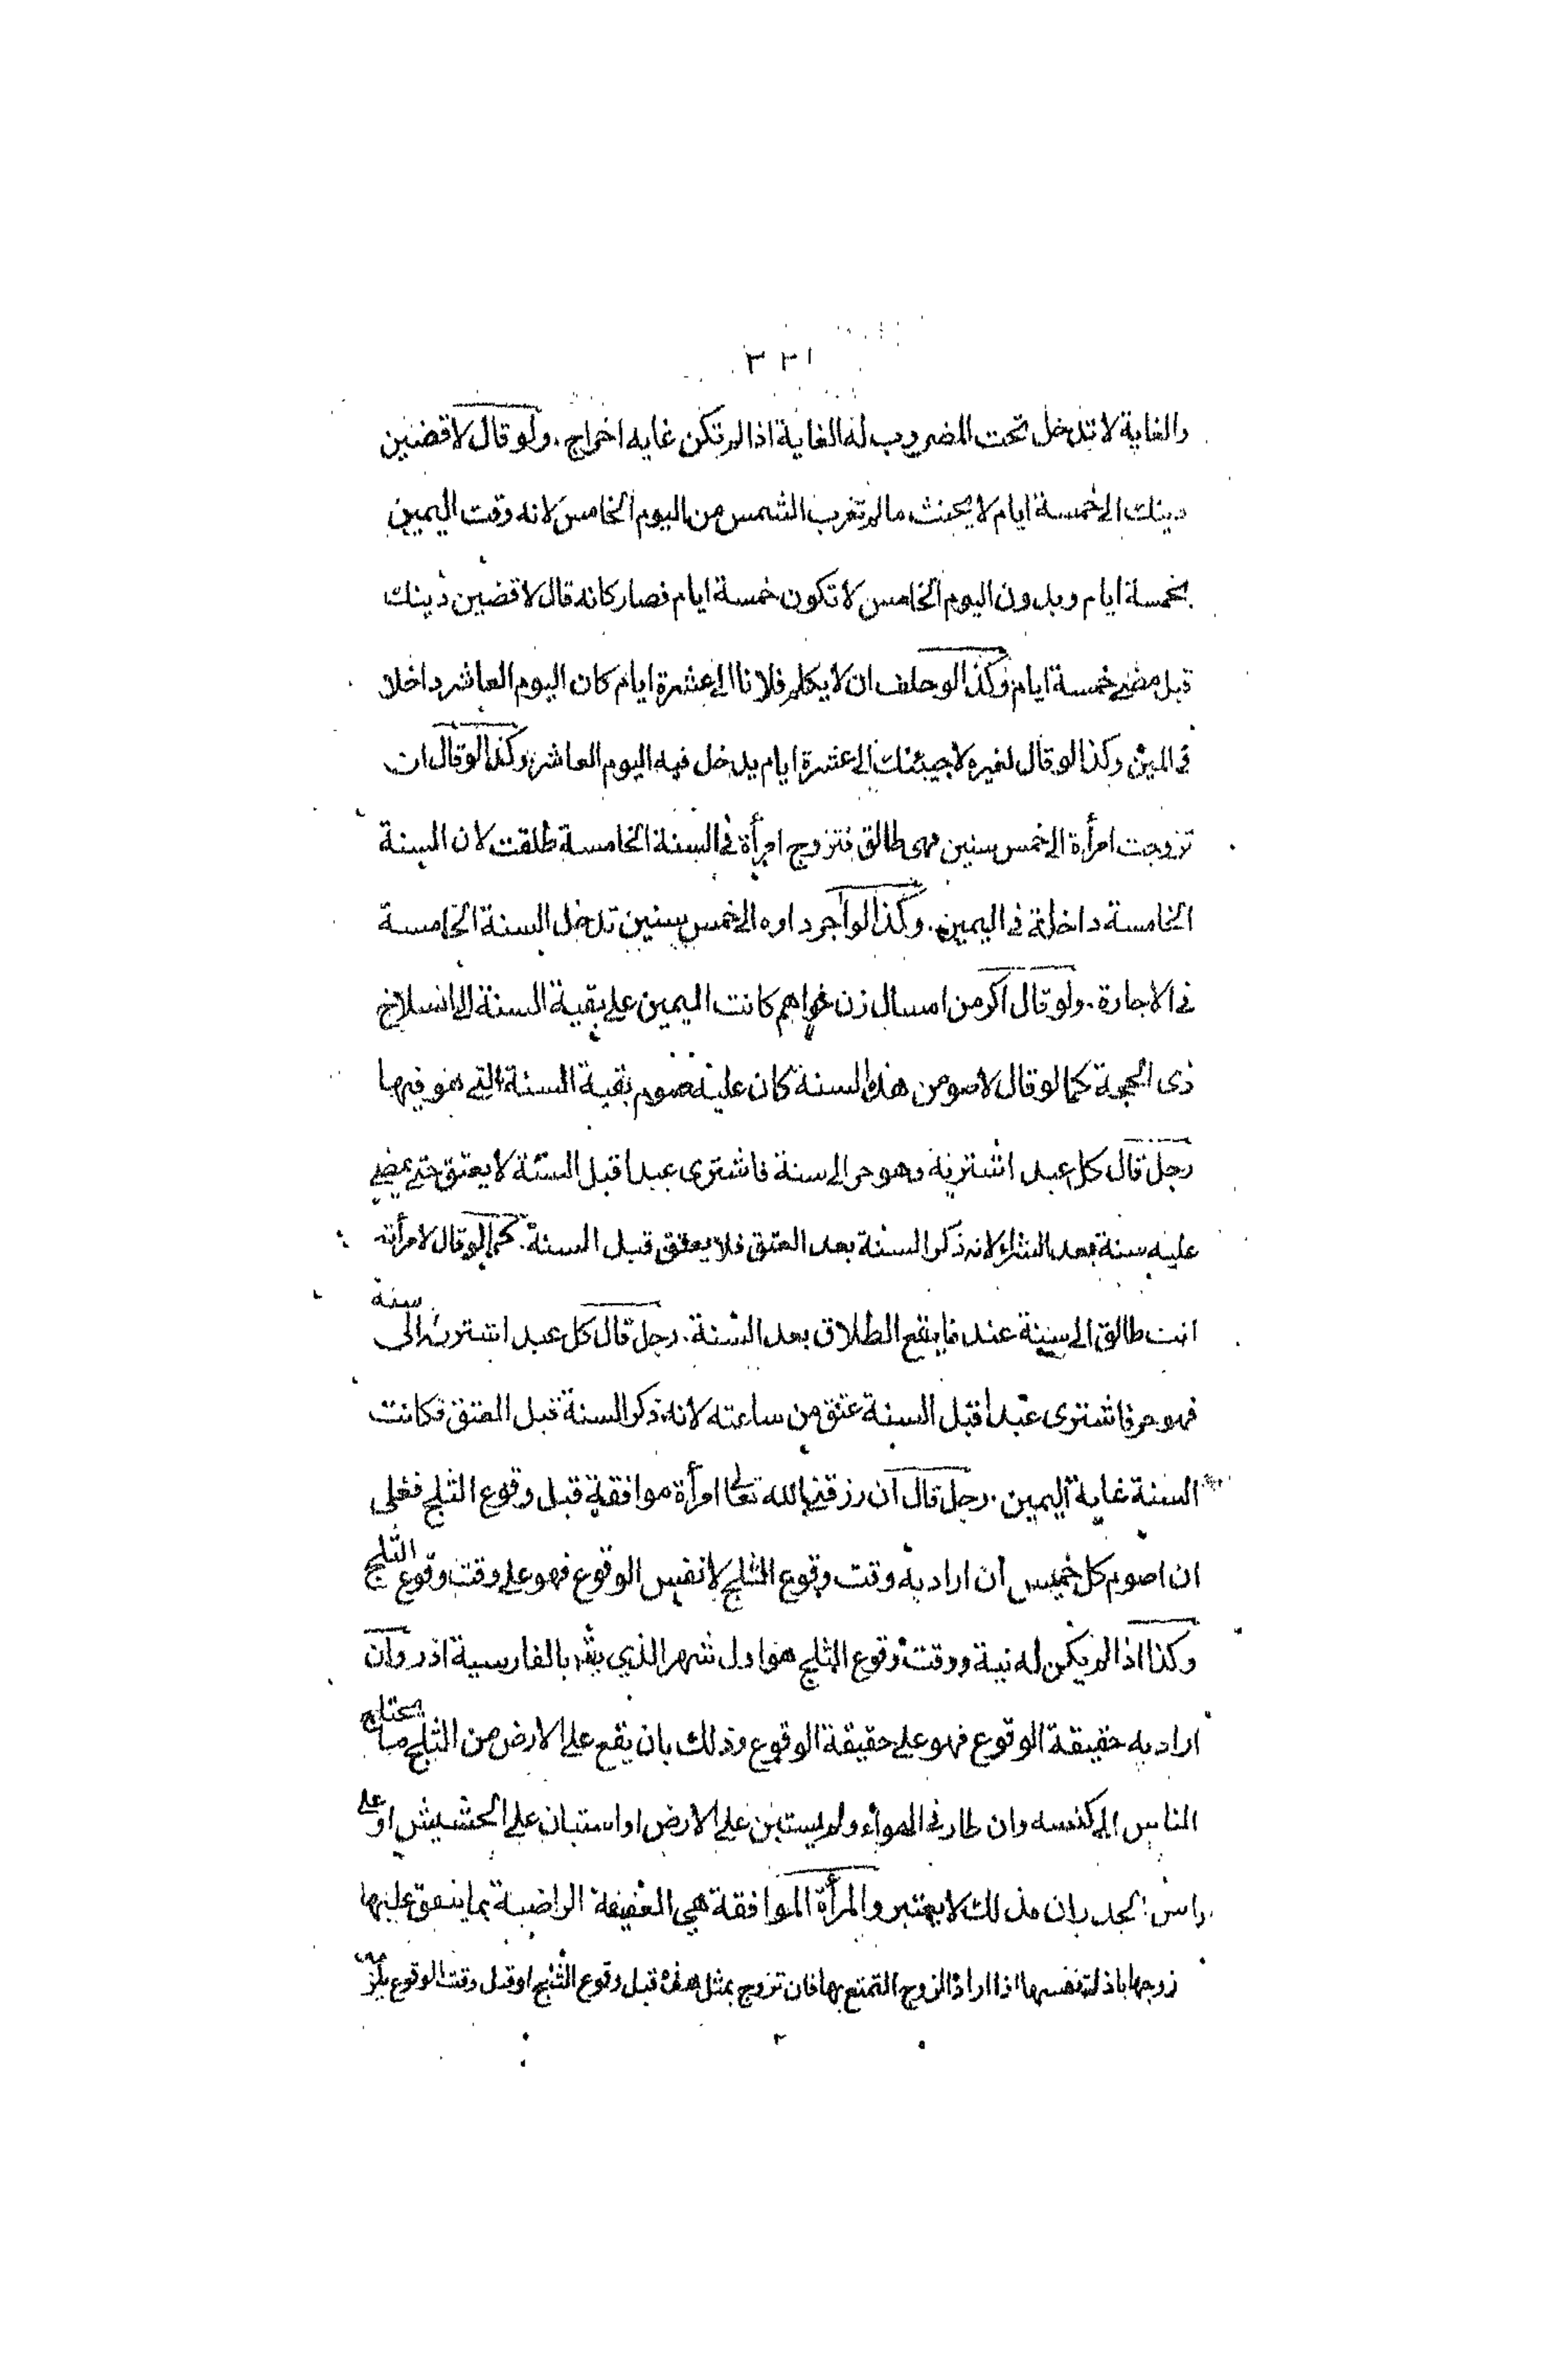 ٣٢١
والغاية لا تدخل تحت المضروب له الغاية اذا لم تكن غايه اخراج . ولو قال لاقضين
دينك الى خمسة ايام لا يحنث ما لم تغرب الشمس من اليوم الخامس لانه وقت اليمين
بخمسة ايام وبدون اليوم الخامس لا تكون خمسة ايام فصار كانه قال لاقضين دينك
قبل مضي خمسة ايام وكذا لو حلف ان لا يكلم فلانا الى عشرة ايام كان اليوم العاشر داخلا
في اليمين وكذا لو قال لغيره لاجيئنك الى عشرة ايام يدخل فيه اليوم العاشر وكذا لو قال ان
تزوجت امرأة الى خمس سنين فهى طالق فتزوج امرأة في السنة الخامسة طلقت لان السنة
الخامسة داخلة في اليمين . وكذا لو آجر داره الى خمس سنين تدخل السنة الخامسة
في الاجارة . ولو قال اكر من امسال زن خواهم كانت اليمين على بقية السنة الى انسلاخ
ذى الحجة كما لو قال لاصومن هذه السنة كان عليه صوم بقية السنة التي هو فيها
رجل قال كل عبد اشتريه وهو حر الى سنة فاشترى عبدا قبل السنة لا يعتق حتى يمضي
عليه سنة بعد الشراء لانه ذكر السنة بعد العتق فلا يعتق قبل السنة . كما لو قال لامرأته
انت طالق الى سنة عندنا يقع الطلاق بعد السنة . رجل قال كل عبد اشتريه الى سنة
فهو حر فاشترى عبدا قبل السنة عتق من ساعته لانه ذكر السنة قبل العتق فكانت
السنة غاية اليمين . رجل قال ان رزقني الله تعالى امرأة موافقة قبل وقوع الثلج فعلي
ان اصوم كل خميس ان اراد به وقت وقوع الثلج لا نفس الوقوع فهو على وقت وقوع الثلج
وكذا اذا لم يكن له نية ووقت وقوع الثلج هو اول شهر الذي بالفارسية اذر وان
اراد به حقيقة الوقوع فهو على حقيقة الوقوع وذلك بان يقع على الارض من الثلج ما يحتاج
الناس الى كنسه وان طار في الهواء ولم يستبن على الارض او استبان على الحشيش او على
راس الجدران فذلك لا يعتبر والمرأة الموافقة هي العفيفة الراضية بما ينفق عليها
زوجها باذلة نفسها اذا اراد الزوج التمتع بها فان تزوج بمثل هذه قبل وقوع الثلج او قبل وقت الوقوع يلزمه